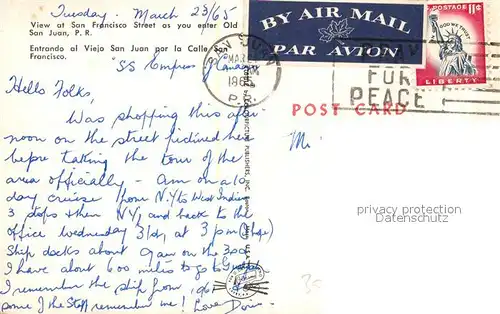 Tuesday - March 23/65
View at San Francisco Street as you enter Old
San Juan, P. R.
Entrando al Viejo San Juan por la Calle San
Francisco.
BY AIR MAIL
PAR AVION
POSTAGE 11¢
IN GOD WE TRUST
LIBERTY
SAN JUAN
MAR
P. R.
PRAY
FOR
PEACE
POST CARD
"SS Empress
Hello Folks,
Was shopping this after-
noon on the street pictured here
before taking the tour of the
area officially - Am on a 10
day cruise from N.Y. to West Indies
3 stops then N.Y, and back to the
office Wednesday 31st, at 3 pm (I hope)
Ship docks about 9am on the 30th
I have about 600 miles to go to
I remember the ship from
some of the staff remember me! Love
Mr.
privacy protection
Datenschutz
35